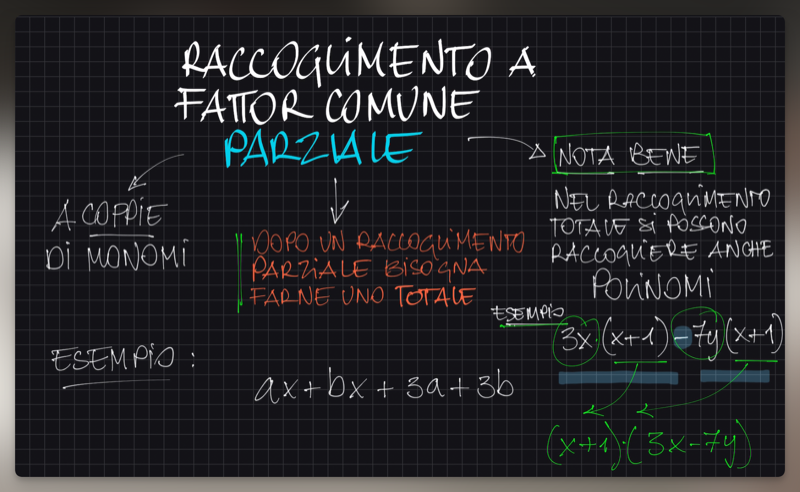 RACCOGLIMENTO A
FATTOR COMUNE
PARZIALE
A COPPIE
DI MONOMI
DOPO UN RACCOGLIMENTO
PARZIALE BISOGNA
FARNE UNO TOTALE
NOTA BENE
NEL RACCOGLIMENTO
TOTALE SI POSSONO
RACCOGLIERE ANCHE
POLINOMI
ESEMPIO
3x·(x+1)-7y(x+1)
(x+1)·(3x-7y)
ESEMPIO:
ax+bx+3a+3b